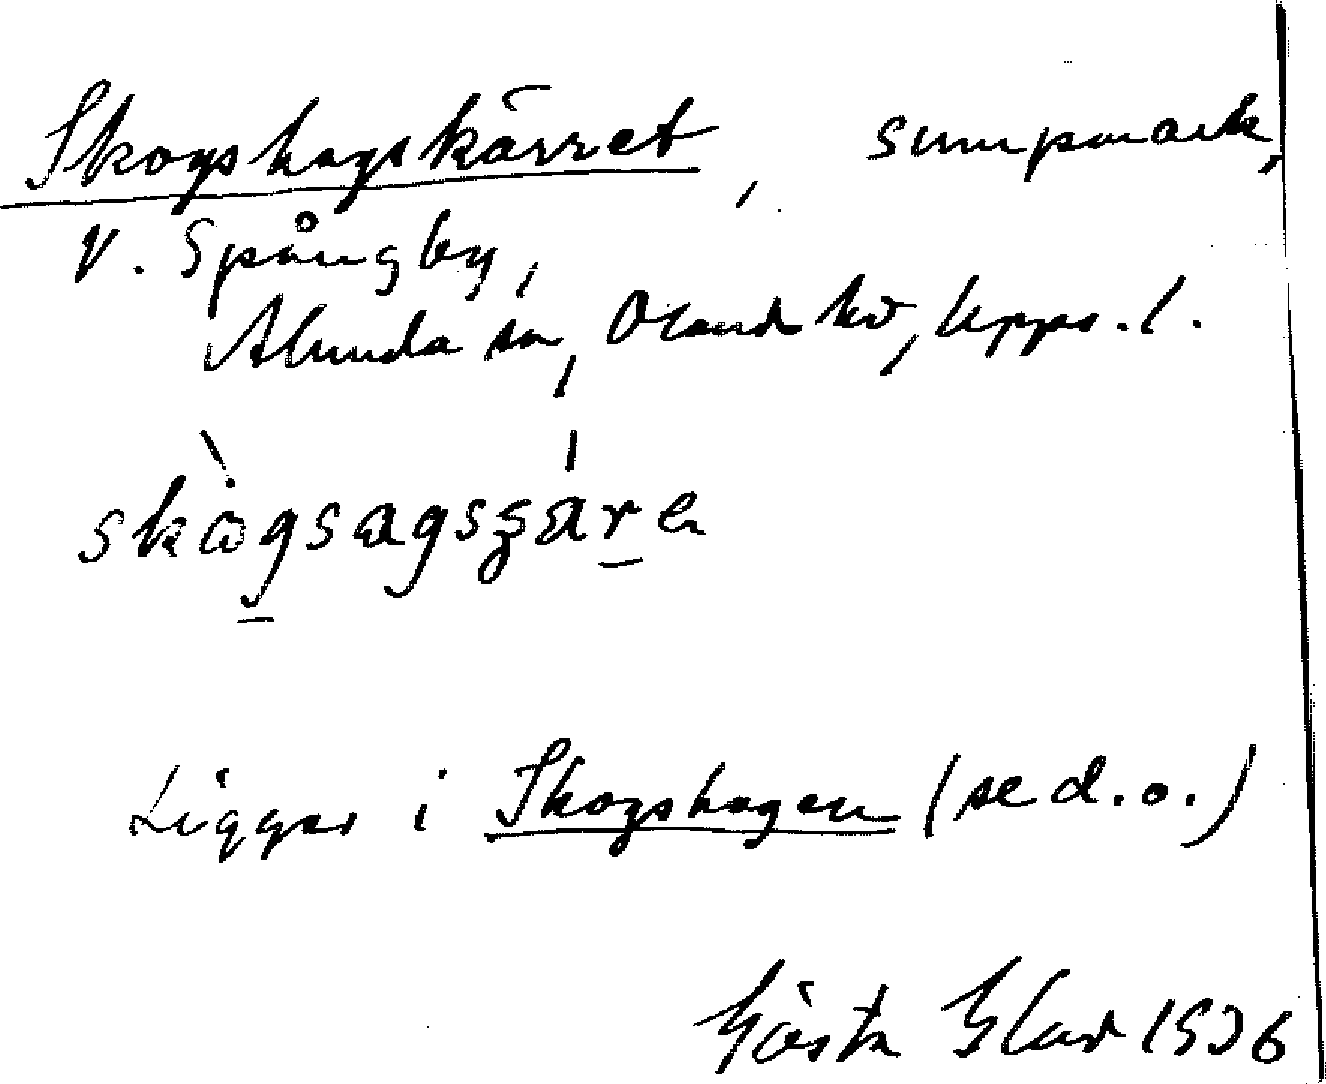 Skogshagskärret, sumpmark,
V. Spångby,
Alunda sn, Olands hd, Upps. l.
skògsagsʒáren
Ligger i Skogshagen (se d.o.)
Gösta 1936